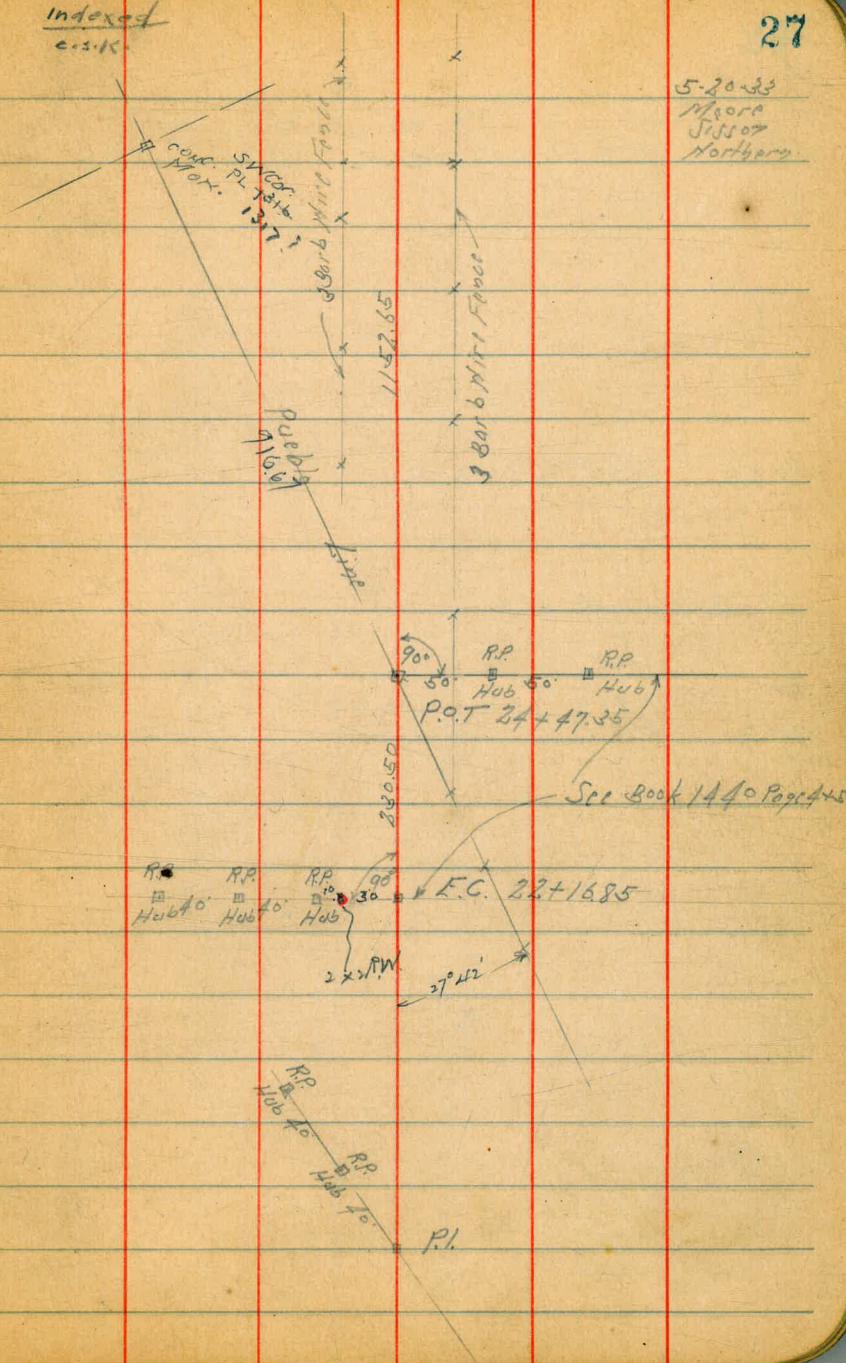 Indexed
C.S.K.
27
5-20-33
Moore
Sisson
Northern
CONC. MON.
SW COR.
PL 1316
1317
3 Barb Wire Fence
1152.65
3 Barb Wire Fence
Pueblo Line
916.67
90°
50'
R.P.
Hub
50'
R.P.
Hub
P.O.T 24+47.35
230.50
See Book 1440 Page 4+5
R.P.
Hub
40'
R.P.
Hub
40'
R.P.
Hub
10
30
90°
E.C. 22+16.85
2x2 R.W.
27°42'
R.P.
Hub 40'
R.P.
Hub 40'
P.I.